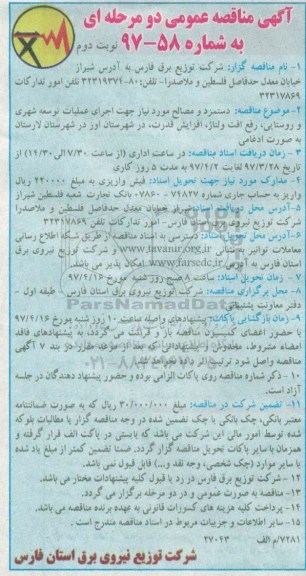 آگهی مناقصه عمومی دو مرحله ای
به شماره ۵۸-۹۷
نوبت دوم
۱- نام مناقصه گزار: شرکت توزیع برق فارس به آدرس شیراز
خیابان معدل حدفاصل فلسطین و ملاصدرا- تلفن: تلفن امور تدارکات
۳۲۳۱۷۸۶۹
۲- موضوع مناقصه: دستمزد و مصالح مورد نیاز جهت اجرای عملیات توسعه شهری
و روستایی، رفع افت ولتاژ، افزایش قدرت، در شهرستان اوز در شهرستان لارستان
به صورت ادغامی
۳- زمان دریافت اسناد مناقصه: در ساعت اداری (از ساعت ۷/۳۰ الی ۱۴/۳۰) از
تاریخ ۹۷/۳/۲۸ لغایت ۹۷/۴/۲ به مدت ۵ روز کاری
۴- مدارک مورد نیاز جهت تحویل اسناد: فیش واریزی به مبلغ ۴۲۰۰۰۰ ریال
واریز به حساب جاری شماره بانک تجارت شعبه فلسطین شیراز
۵- محل دریافت اسناد: شیراز خیابان معدل حدفاصل فلسطین و ملاصدرا
شرکت توزیع نیروی برق استان فارس- امور تدارکات تلفن ۳۲۳۱۷۸۶۹
۶- آدرس محل دسترسی به اسناد مناقصه از طریق شبکه اطلاع رسانی
معاملات توانیر به نشانی www.tavanir.org.ir و شرکت توزیع نیروی برق
استان فارس به آدرس www.farsedc.ir امکان پذیر می باشد.
۷- زمان تحویل اسناد: ساعت ۸ صبح روز شنبه مورخ ۹۷/۴/۱۶
۸- محل برگزاری مناقصه: شرکت توزیع نیروی برق استان فارس- طبقه اول -
دفتر معاونت پشتیبانی
۹- زمان بازگشایی پاکات: پیشنهادهای واصله ساعت ۱۰ روز شنبه مورخ ۹۷/۴/۱۶
با حضور اعضای کمیسیون مناقصه باز و قرائت می گردد، به پیشنهادهای فاقد
امضاء، مشروط، مخدوش و پیشنهاداتی که بعد از موعد مقرر در بند ۷ آگهی
مناقصه واصل شود ترتیب اثر داده نخواهد شد.
۱۰- ذکر شماره مناقصه روی پاکات الزامی بوده و حضور پیشنهاد دهندگان در جلسه
آزاد است.
۱۱- تضمین شرکت در مناقصه: مبلغ ۳۰/۰۰۰/۰۰۰ ریال که به صورت ضمانتنامه
معتبر بانکی، چک بانکی یا چک تضمین شده در وجه مناقصه گزار یا مطالبات بلوکه
شده توسط امور مالی این شرکت می باشد که بایستی در پاکت الف قرار گرفته و
همزمان با سایر پاکات تحویل مناقصه گزار گردد. ضمنا تضمین کمتر از مبلغ یاد شده
یا سایر موارد (چک شخصی، وجه نقد و...) قابل قبول نمی باشد.
۱۲- شرکت توزیع برق فارس در رد یا قبول کلیه پیشنهادات مختار می باشد.
۱۳- مناقصه به صورت عمومی و در دو مرحله برگزار می گردد.
۱۴- پرداخت کلیه هزینه های کسورات قانونی به عهده برنده مناقصه می باشد.
۱۵- سایر اطلاعات و جزییات مربوط در اسناد مناقصه مندرج است.
۷۲۸۱/م الف ۲۷۰۲۳
شرکت توزیع نیروی برق استان فارس